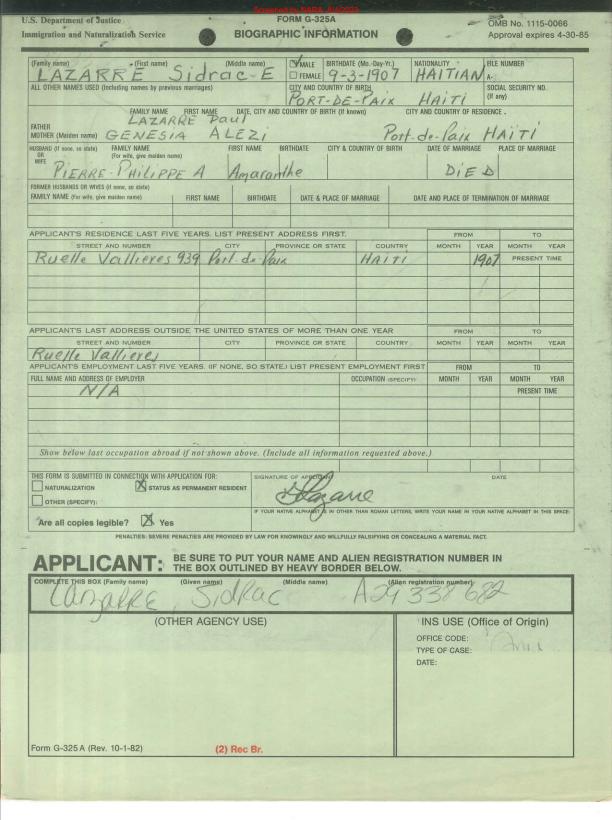 Screened by NARA,
U.S. Department of Justice
Immigration and Naturalization Service
FORM G-325A
BIOGRAPHIC INFORMATION
OMB No. 1115-0066
Approval expires 4-30-85
(Family name) (First name) (Middle name) MALE BIRTHDATE (Mo.-Day-Yr.) NATIONALITY FILE NUMBER
LAZARRE Sidrac-E FEMALE 9-3-1907 HAITIAN A-
ALL OTHER NAMES USED (Including names by previous marriages) CITY AND COUNTRY OF BIRTH SOCIAL SECURITY NO.
PORT-DE-PAIX HAITI (If any)
FAMILY NAME FIRST NAME DATE, CITY AND COUNTRY OF BIRTH (If known) CITY AND COUNTRY OF RESIDENCE
FATHER LAZARRE Paul
MOTHER (Maiden name) GENESIA ALEZI Port-de-Paix HAITI
HUSBAND (If none, so state) OR WIFE FAMILY NAME (For wife, give maiden name) FIRST NAME BIRTHDATE CITY & COUNTRY OF BIRTH DATE OF MARRIAGE PLACE OF MARRIAGE
PIERRE-PHILIPPE A Amaranthe DIED
FORMER HUSBANDS OR WIVES (if none, so state)
FAMILY NAME (For wife, give maiden name) FIRST NAME BIRTHDATE DATE & PLACE OF MARRIAGE DATE AND PLACE OF TERMINATION OF MARRIAGE
APPLICANT'S RESIDENCE LAST FIVE YEARS. LIST PRESENT ADDRESS FIRST. FROM TO
STREET AND NUMBER CITY PROVINCE OR STATE COUNTRY MONTH YEAR MONTH YEAR
Ruelle Vallieres 939 Port-de-Paix HAITI 1907 PRESENT TIME
APPLICANT'S LAST ADDRESS OUTSIDE THE UNITED STATES OF MORE THAN ONE YEAR FROM TO
STREET AND NUMBER CITY PROVINCE OR STATE COUNTRY MONTH YEAR MONTH YEAR
Ruelle Vallieres
APPLICANT'S EMPLOYMENT LAST FIVE YEARS. (IF NONE, SO STATE.) LIST PRESENT EMPLOYMENT FIRST FROM TO
FULL NAME AND ADDRESS OF EMPLOYER OCCUPATION (SPECIFY) MONTH YEAR MONTH YEAR
N/A PRESENT TIME
Show below last occupation abroad if not shown above. (Include all information requested above.)
THIS FORM IS SUBMITTED IN CONNECTION WITH APPLICATION FOR: SIGNATURE OF APPLICANT DATE
NATURALIZATION X STATUS AS PERMANENT RESIDENT
OTHER (SPECIFY):
IF YOUR NATIVE ALPHABET IS IN OTHER THAN ROMAN LETTERS, WRITE YOUR NAME IN YOUR NATIVE ALPHABET IN THIS SPACE:
Are all copies legible? X Yes
PENALTIES: SEVERE PENALTIES ARE PROVIDED BY LAW FOR KNOWINGLY AND WILLFULLY FALSIFYING OR CONCEALING A MATERIAL FACT.
APPLICANT: BE SURE TO PUT YOUR NAME AND ALIEN REGISTRATION NUMBER IN
THE BOX OUTLINED BY HEAVY BORDER BELOW.
COMPLETE THIS BOX (Family name) (Given name) (Middle name) (Alien registration number)
LAZARRE, SIDRAC A29 338 682
(OTHER AGENCY USE) INS USE (Office of Origin)
OFFICE CODE:
TYPE OF CASE:
DATE:
Form G-325 A (Rev. 10-1-82) (2) Rec Br.